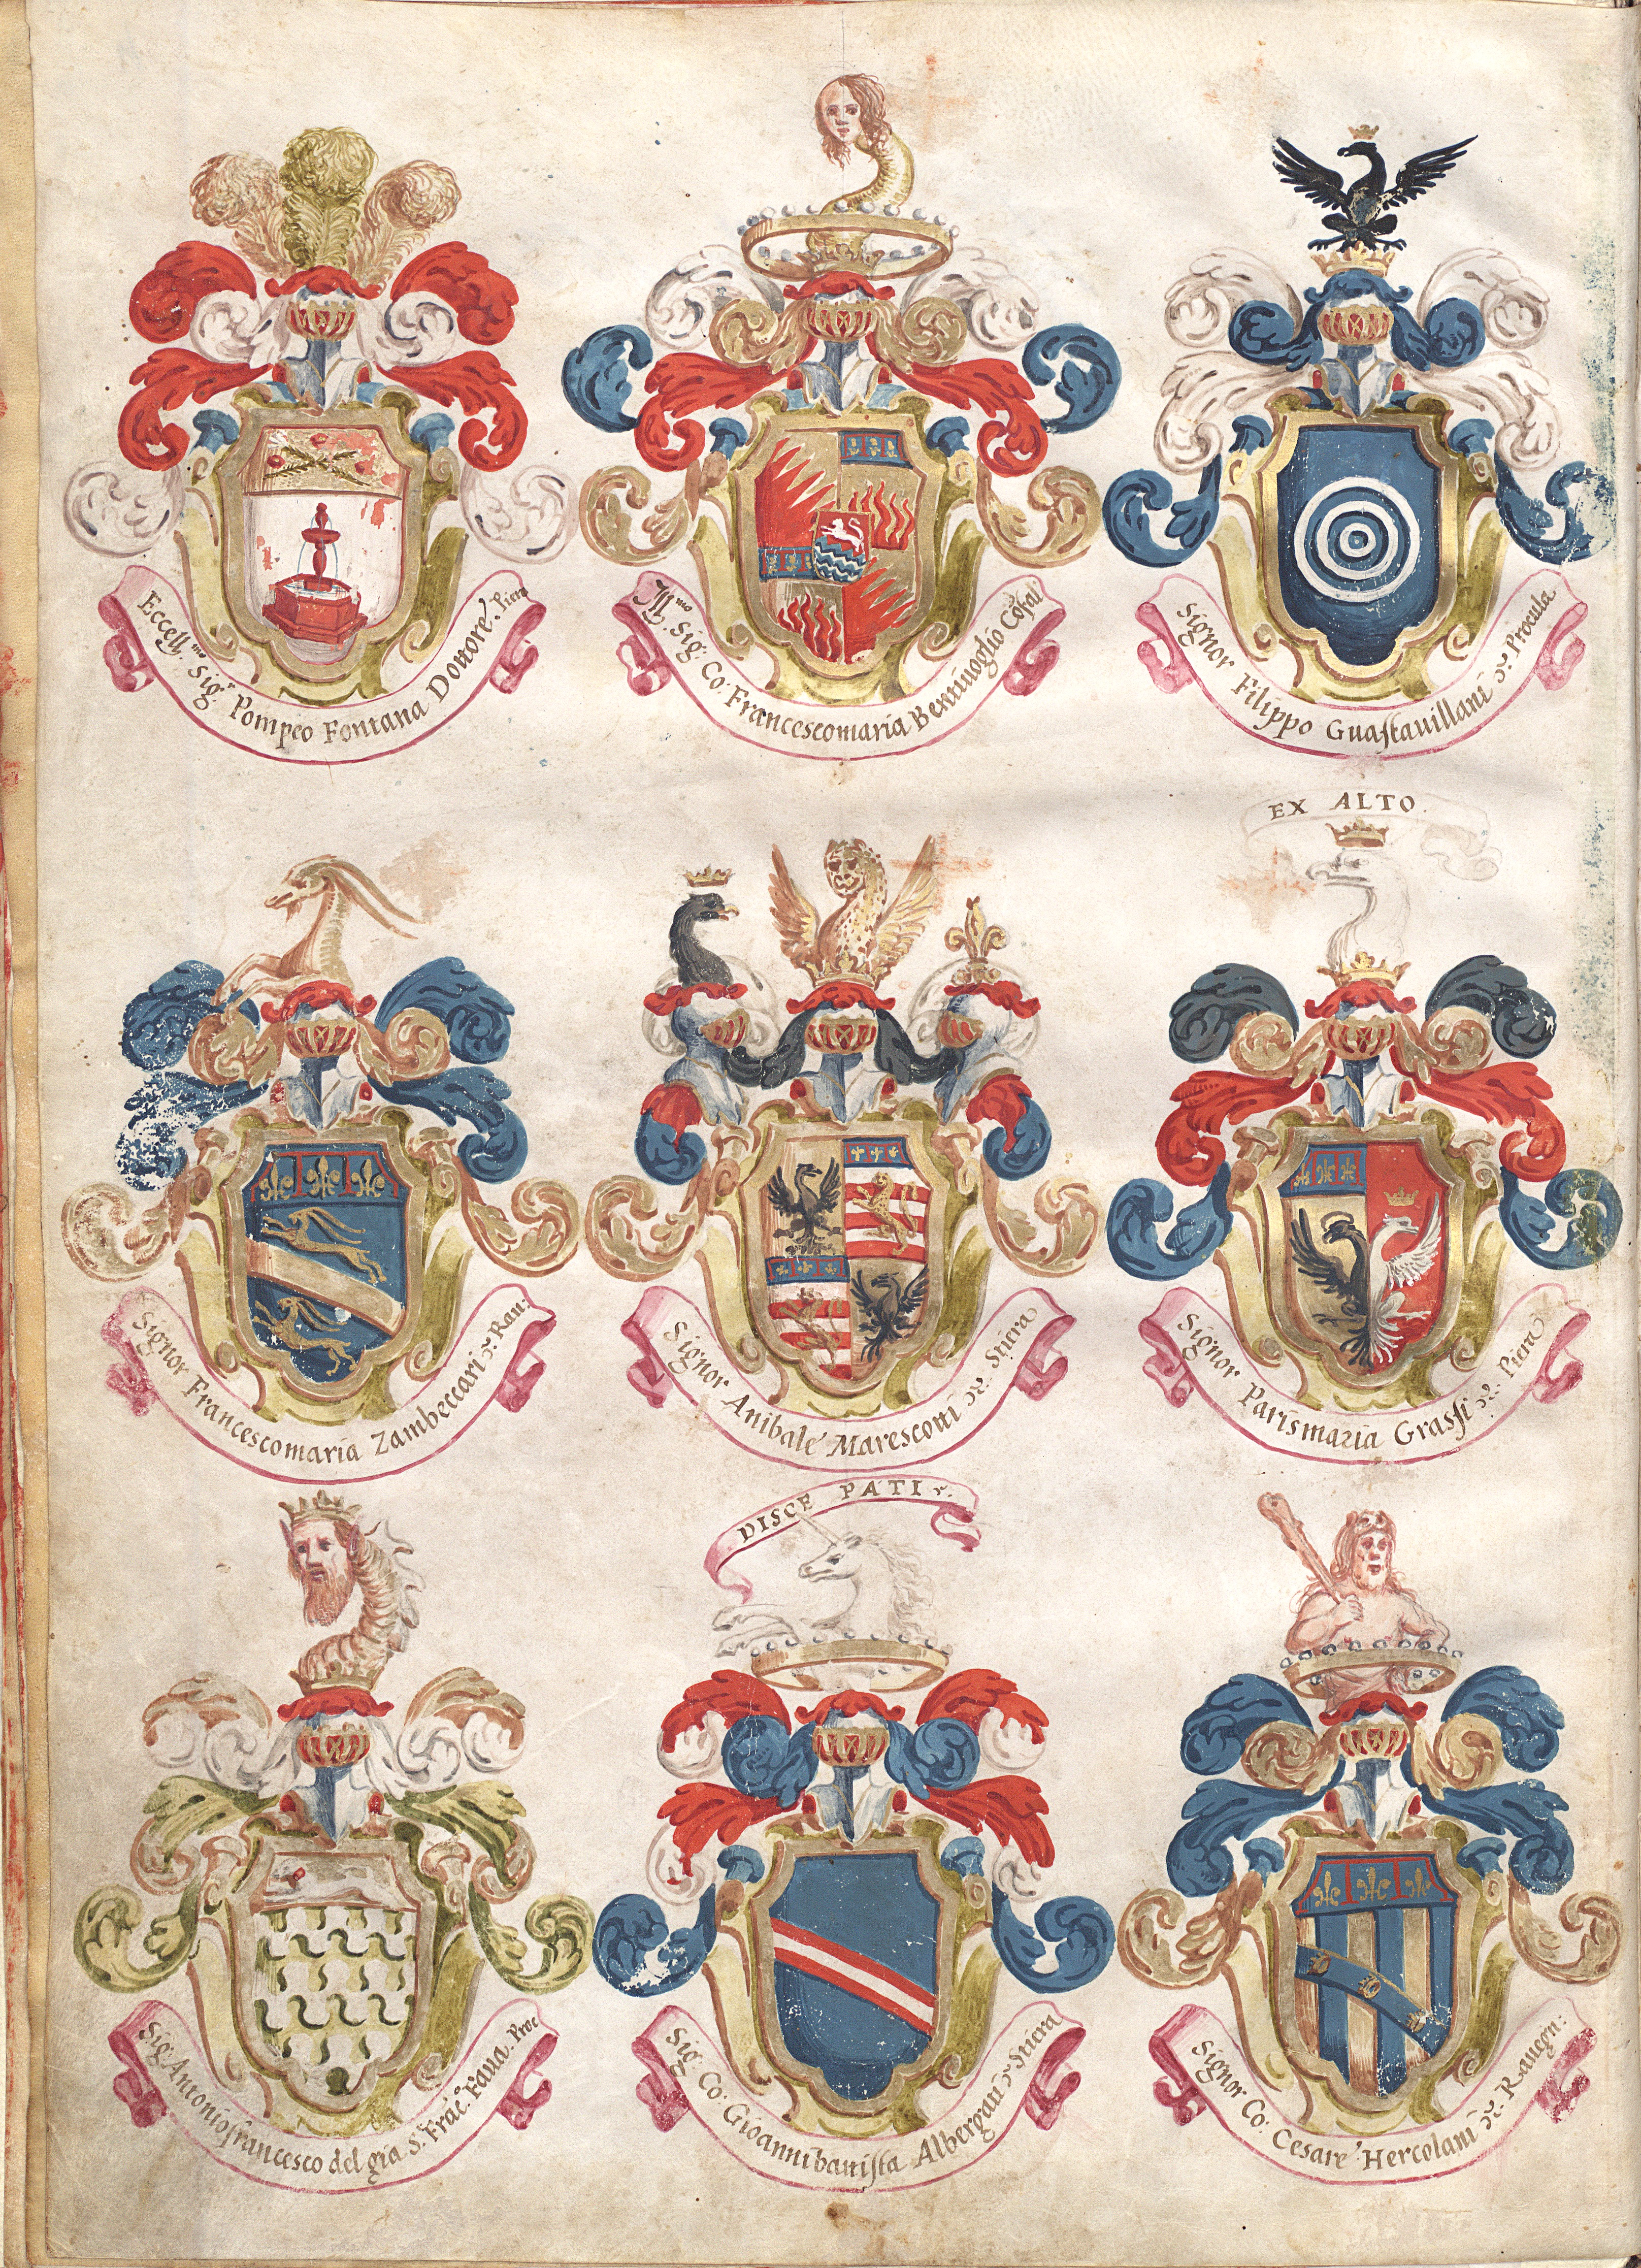 Eccell.mo Sig.r Pompeo Fontana Dottore. Piera
Ill.mo Sig: Co: Francescomaria Bentiuoglio Cosal
Signor Filippo Guastauillani Procula
EX ALTO.
Signor Francescomaria Zambeccari Rau:
Signor Anibale Marescotti Stiera
Signor Parismaria Grassi Piera
DISCE PATI
Sig: Antoniofrancesco del gia S.r Frac.o Faua. Proc
Sig: Co: Gioannibattista Albergati Stiera
Signor Co: Cesare Hercolani Rauegn: